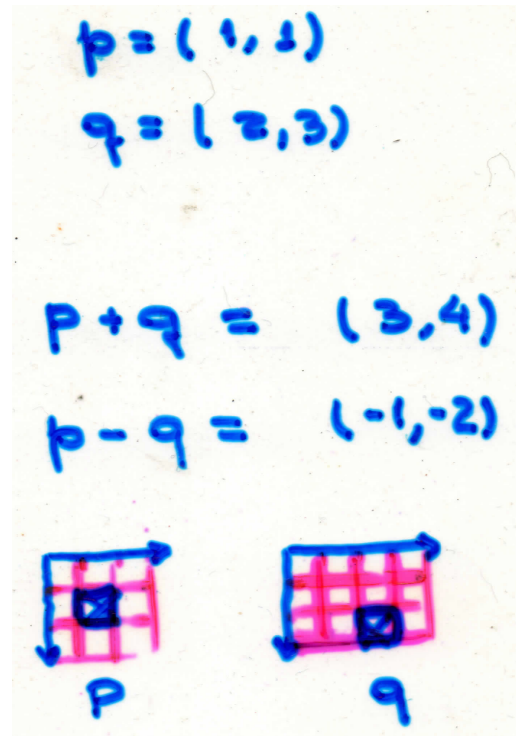 p = (1,1)
q = (2,3)
p + q = (3,4)
p - q = (-1,-2)
p q